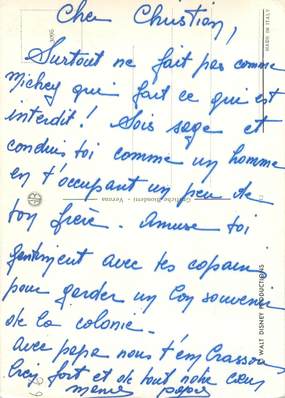 Cher Christian,
Surtout ne fait pas comme
Mickey qui fait ce qui est
interdit ! Sois sage et
conduis toi comme un homme
en t'occupant un peu de
ton frère. Amuse toi
gentiment avec tes copains
pour garder un bon souvenir
de la colonie.
Avec papa nous t'embrassons
bien fort et de tout notre cœur
papa
MADE IN ITALY
© WALT DISNEY PRODUCTIONS
Verona